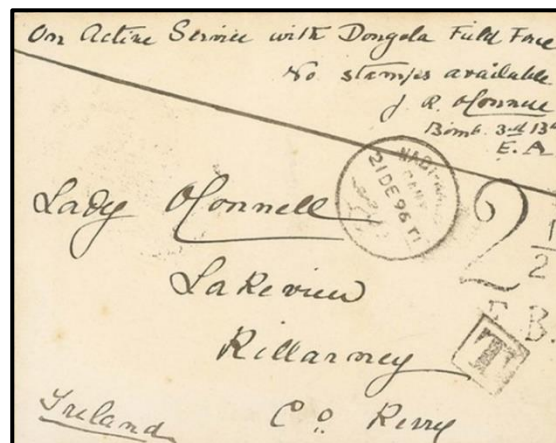 On Active Service with Dongola Field Force
No stamps available
J. R. O'Connell
Bomb. 3rd
E. A
21 DE 96
Lady O'Connell
2 1/2
B.
T
Lakeview
Killarney
Ireland
Co Kerry